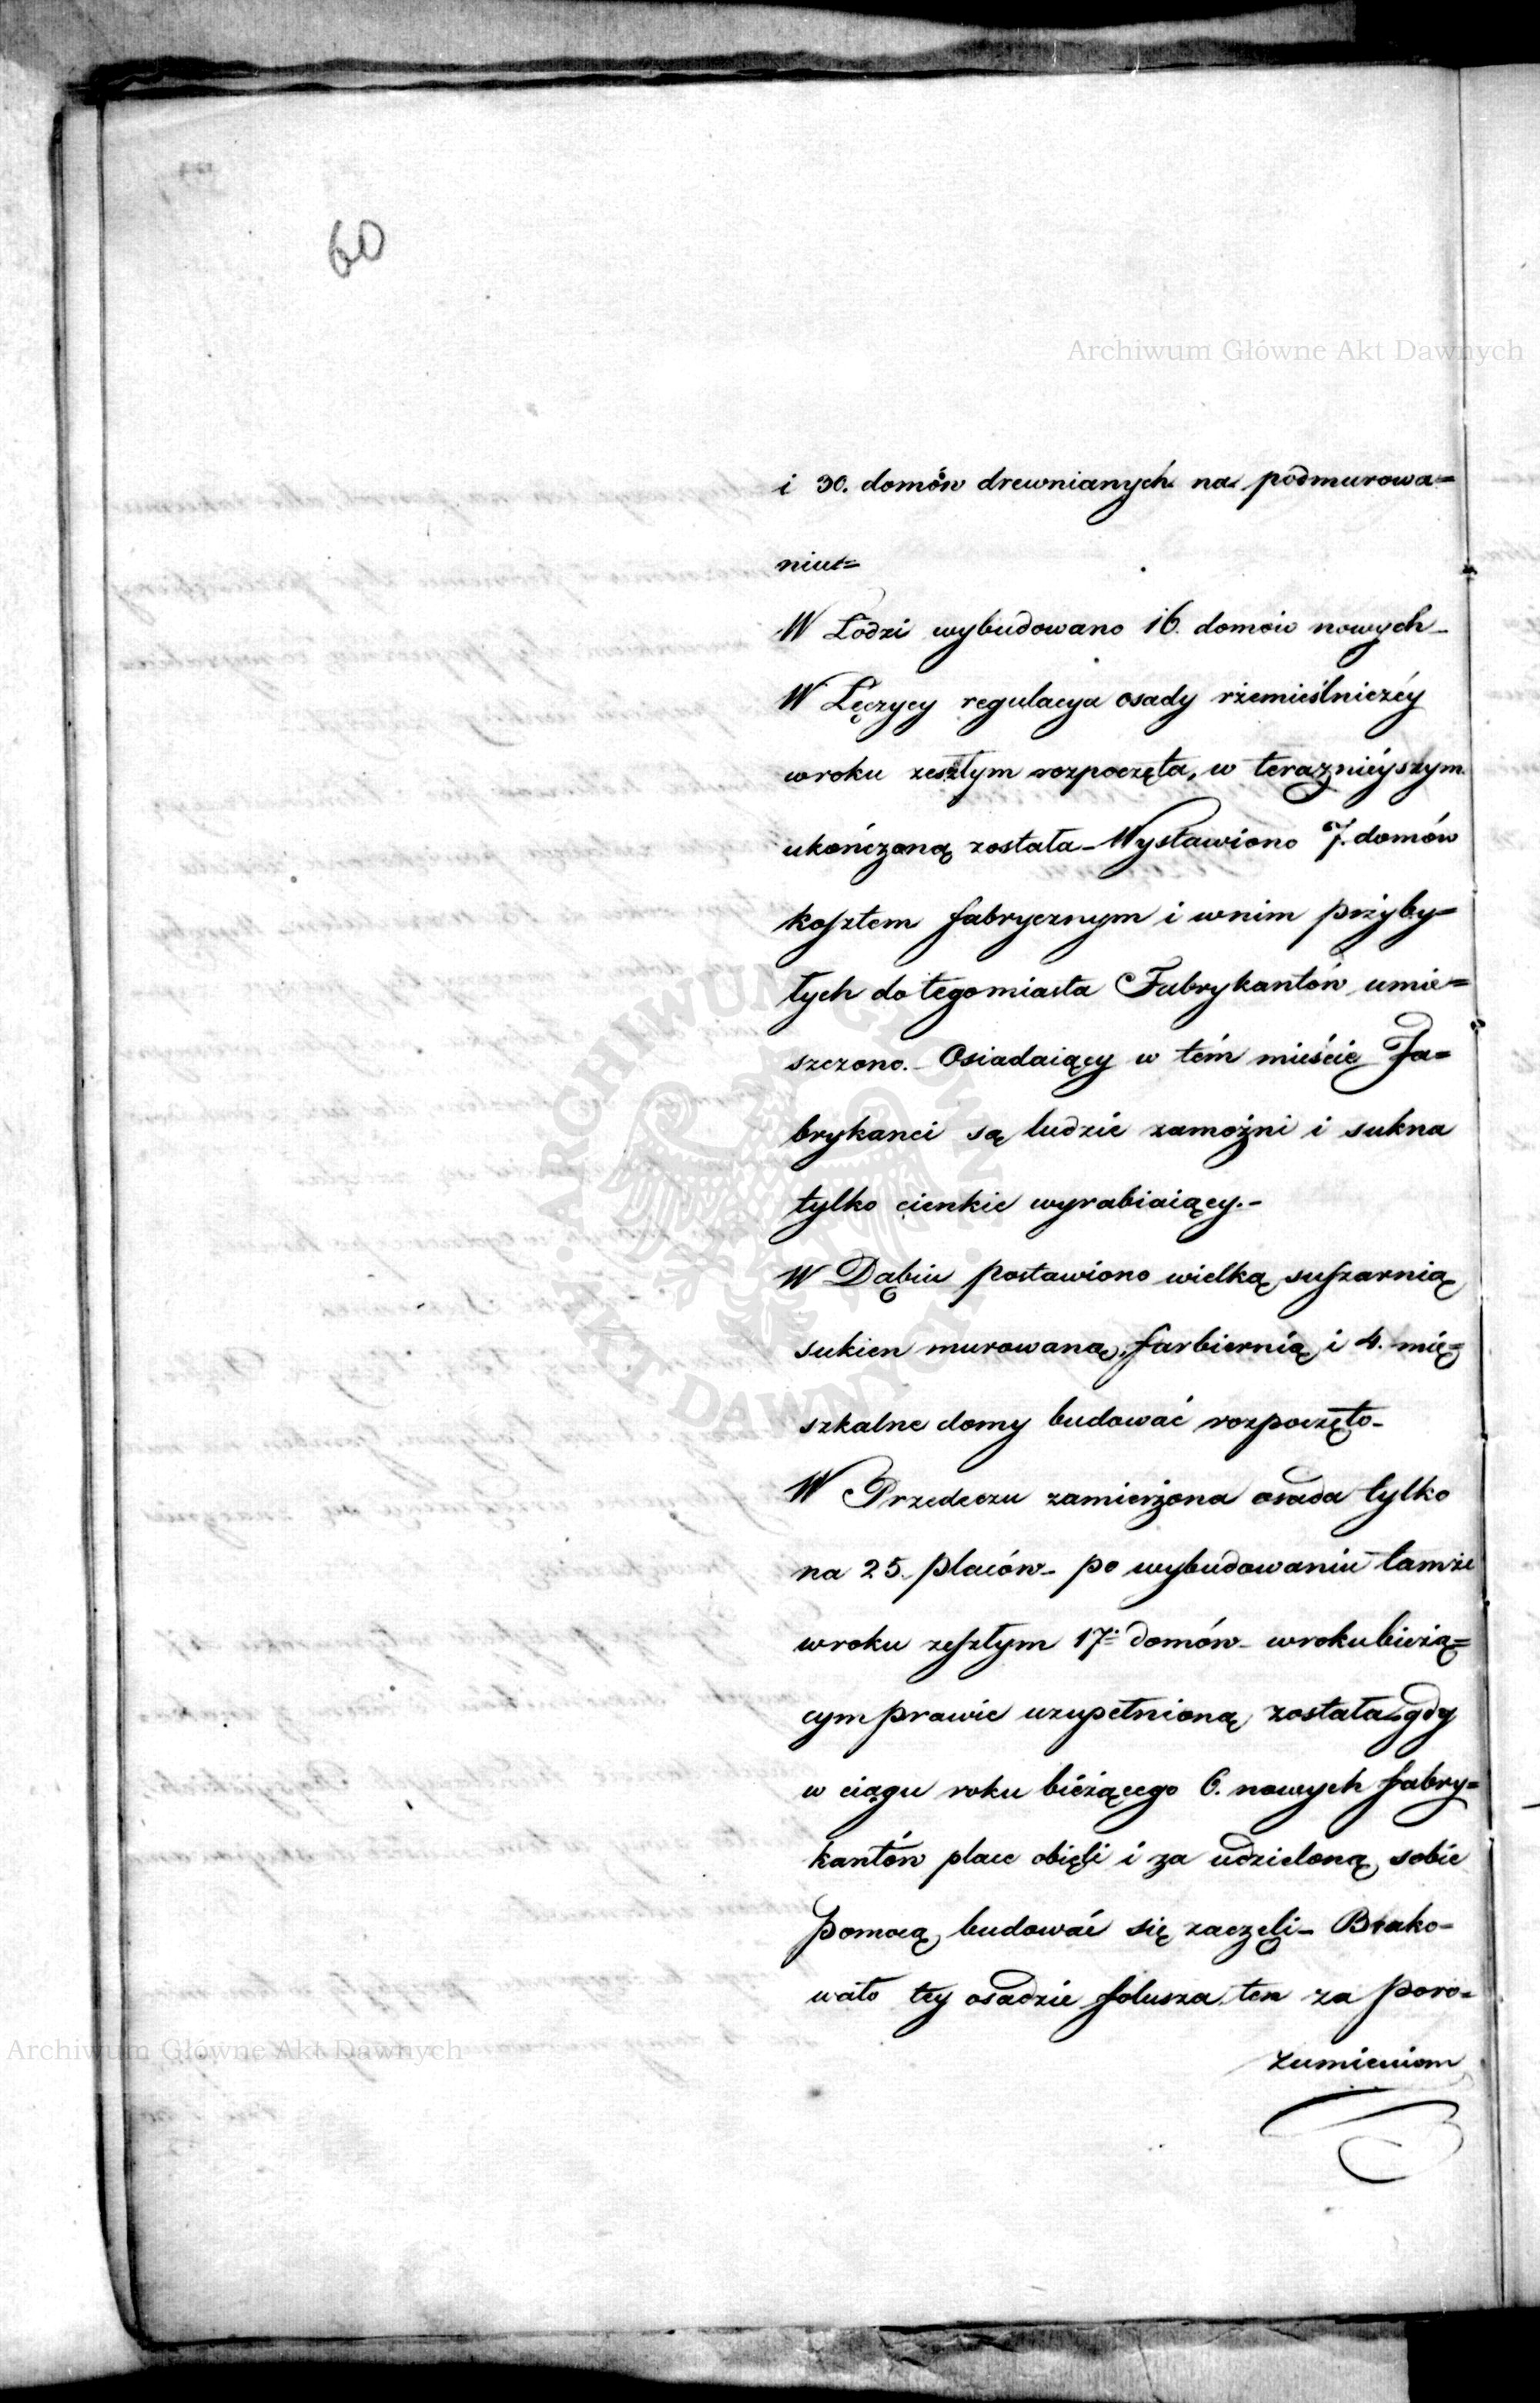 60
Archiwum Główne Akt Dawnych
i 30. domów drewnianych na podmurowa=
niu=
W Łodzi wybudowano 16. domów nowych_
W Łęczycy regulacya osady rżemieślniczéy
w roku zeszłym rozpoczęta, w teraznieyszym
ukończoną została_Wystawiono 7. domów
kosztem fabrycznym i w nim przyby=
łych do tego miasta Fabrykantów umie=
szczono._ Osiadaiący w tém mieście Fa=
brykanci są ludzie zamożni i sukna
tylko cienkie wyrabiaiący.-
W Dąbiu postawiono wielką suszarnią
sukien murowaną, farbiernią i 4. mię=
szkalne domy budować rozpoczęto_
W Przedeczu zamierżona osada tylko
na 25. placów_ po wybudowaniu tamże
w roku zeszłym 17. domów_ w roku bieżą=
cym prawie uzupełnioną została gdy
w ciągu roku bieżącego 6. nowych fabry=
kantów place obięli i za udzieloną sobie
pomocą budować się zaczęli_ Brako=
wało tey osadzie folusza, ten za poro=
zumieniem
Archiwum Główne Akt Dawnych
ARCHIWUM GŁÓWNE · AKT DAWNYCH ·